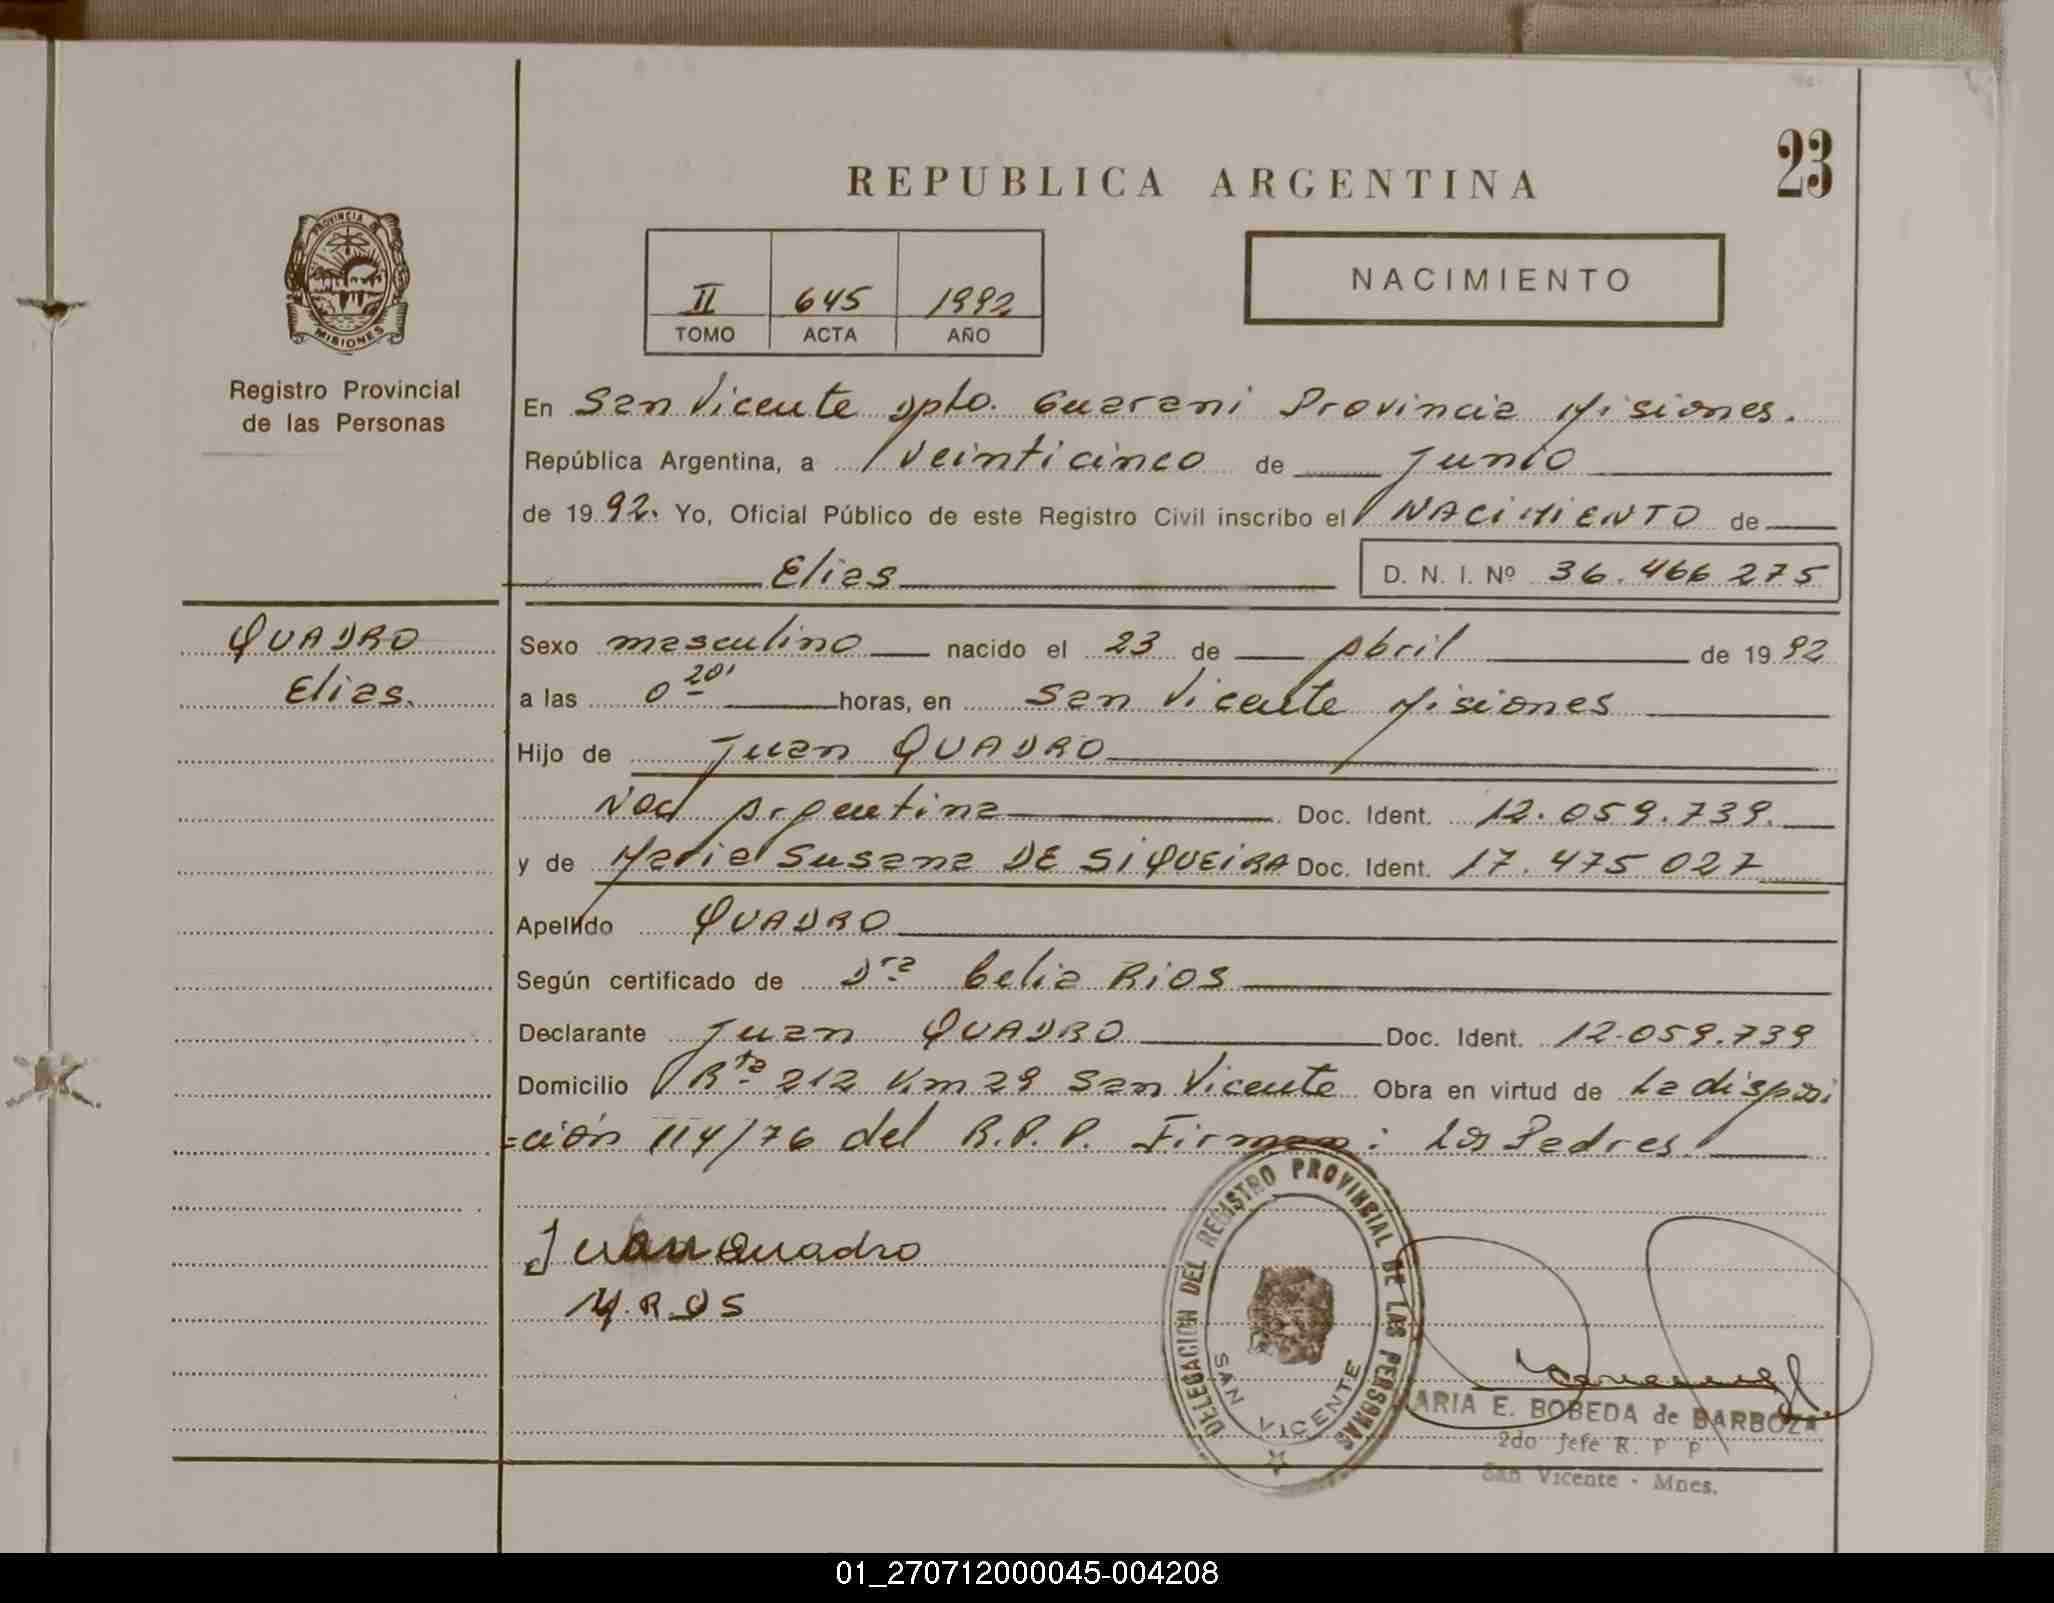 23
REPUBLICA ARGENTINA
PROVINCIA DE
MISIONES
Registro Provincial
de las Personas
II 645 1992
TOMO ACTA AÑO
NACIMIENTO
En San Vicente Dpto. Guarani Provincia Misiones.
República Argentina, a Veinticinco de Junio
de 1992. Yo, Oficial Público de este Registro Civil inscribo el NACIMIENTO de
Elias D. N. I. Nº 36.466 275
QUADRO
Elias.
Sexo masculino nacido el 23 de Abril de 1992
a las 0 20' horas, en San Vicente Misiones
Hijo de Juan QUADRO
Nac Argentina Doc. Ident. 12.059.739.
y de Maria Susana DE SIQUEIRA Doc. Ident. 17.475 027
Apellido QUADRO
Según certificado de Dra Celia RIOS
Declarante Juan QUADRO Doc. Ident. 12.059.739
Domicilio Rta 212 Km 29 San Vicente Obra en virtud de La disposi
=ción 114/76 del R.P.P. Firman: los Padres
Juan Quadro
M.R.DS
DELEGACION DEL REGISTRO PROVINCIAL DE LAS PERSONAS
SAN VICENTE
ARIA E. BOBEDA de BARBOZA
2do Jefe R. P P
San Vicente - Mnes.
01_270712000045-004208